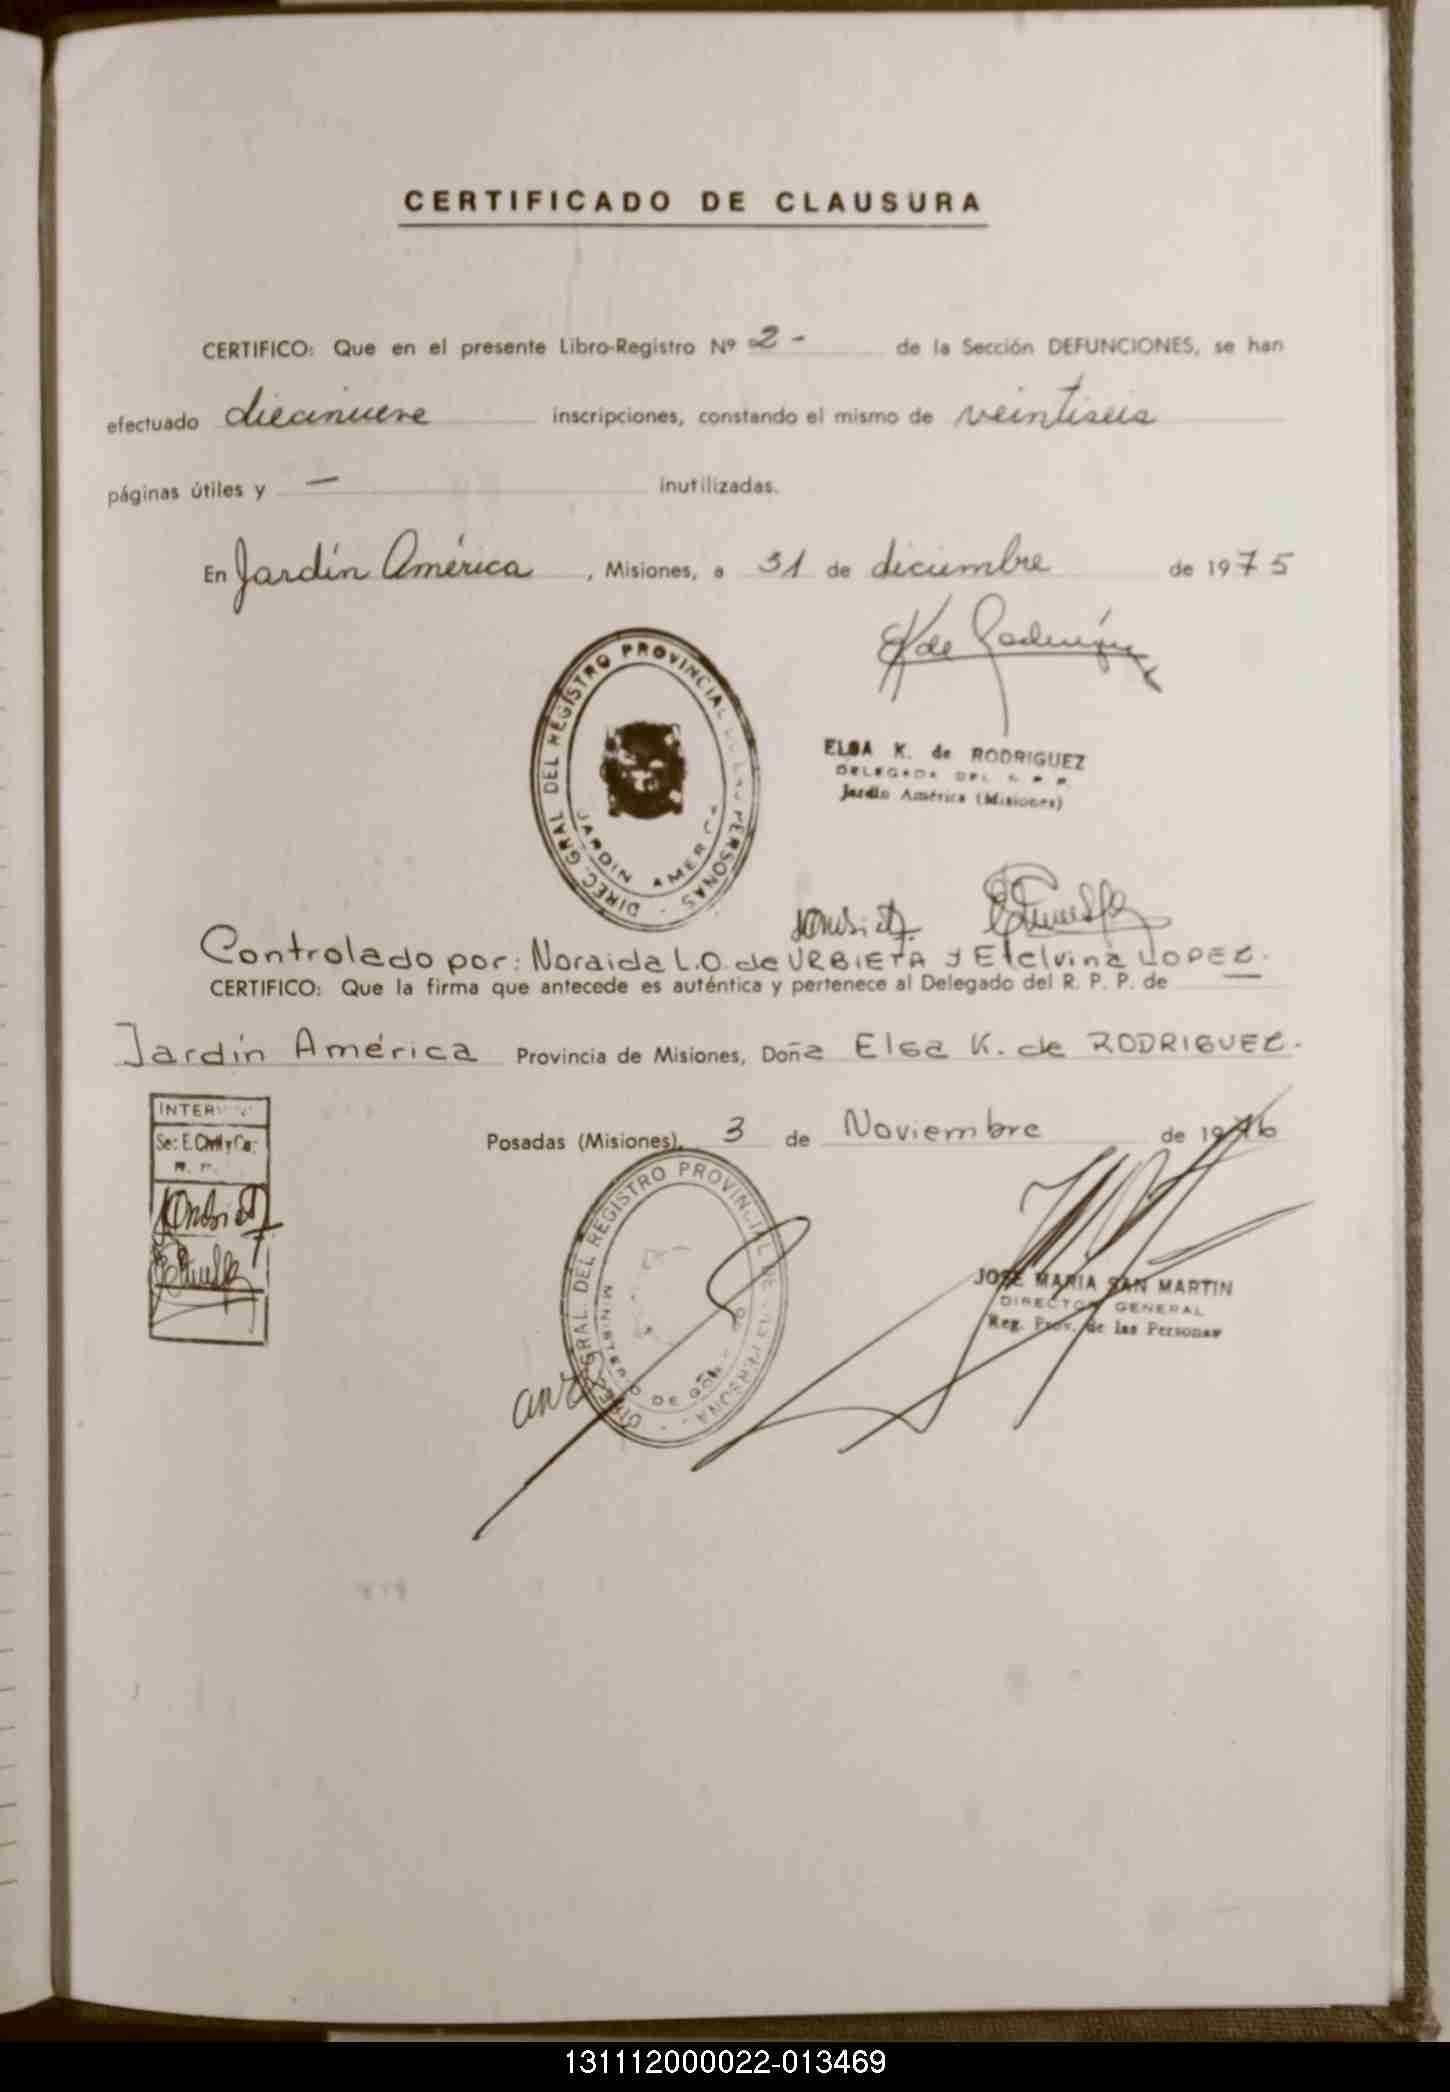 CERTIFICADO DE CLAUSURA
CERTIFICO: Que en el presente Libro-Registro Nº 2 - de la Sección DEFUNCIONES, se han
efectuado diecinueve inscripciones, constando el mismo de veintiseis
páginas útiles y — inutilizadas.
En Jardín América, Misiones, a 31 de diciembre de 1975
DIREC. GRAL DEL REGISTRO PROVINCIAL DE LAS PERSONAS -
JARDIN AMERICA
ELSA K. de RODRIGUEZ
DELEGADA DEL R. P. P.
Jardín América (Misiones)
Controlado por: Noraida L.O. de URBIETA y Etelvina LOPEZ.
CERTIFICO: Que la firma que antecede es auténtica y pertenece al Delegado del R. P. P. de —
Jardín América Provincia de Misiones, Doña Elsa K. de RODRIGUEZ.
INTERVINO
Sec. E. Civil y Ca.
R. P.
Posadas (Misiones), 3 de Noviembre de 1976
DIREC. GRAL. DEL REGISTRO PROVINCIAL DE LAS PERSONAS -
MINISTERIO DE GOBIERNO
JOSE MARIA SAN MARTIN
DIRECTOR GENERAL
Reg. Prov. de las Personas
131112000022-013469